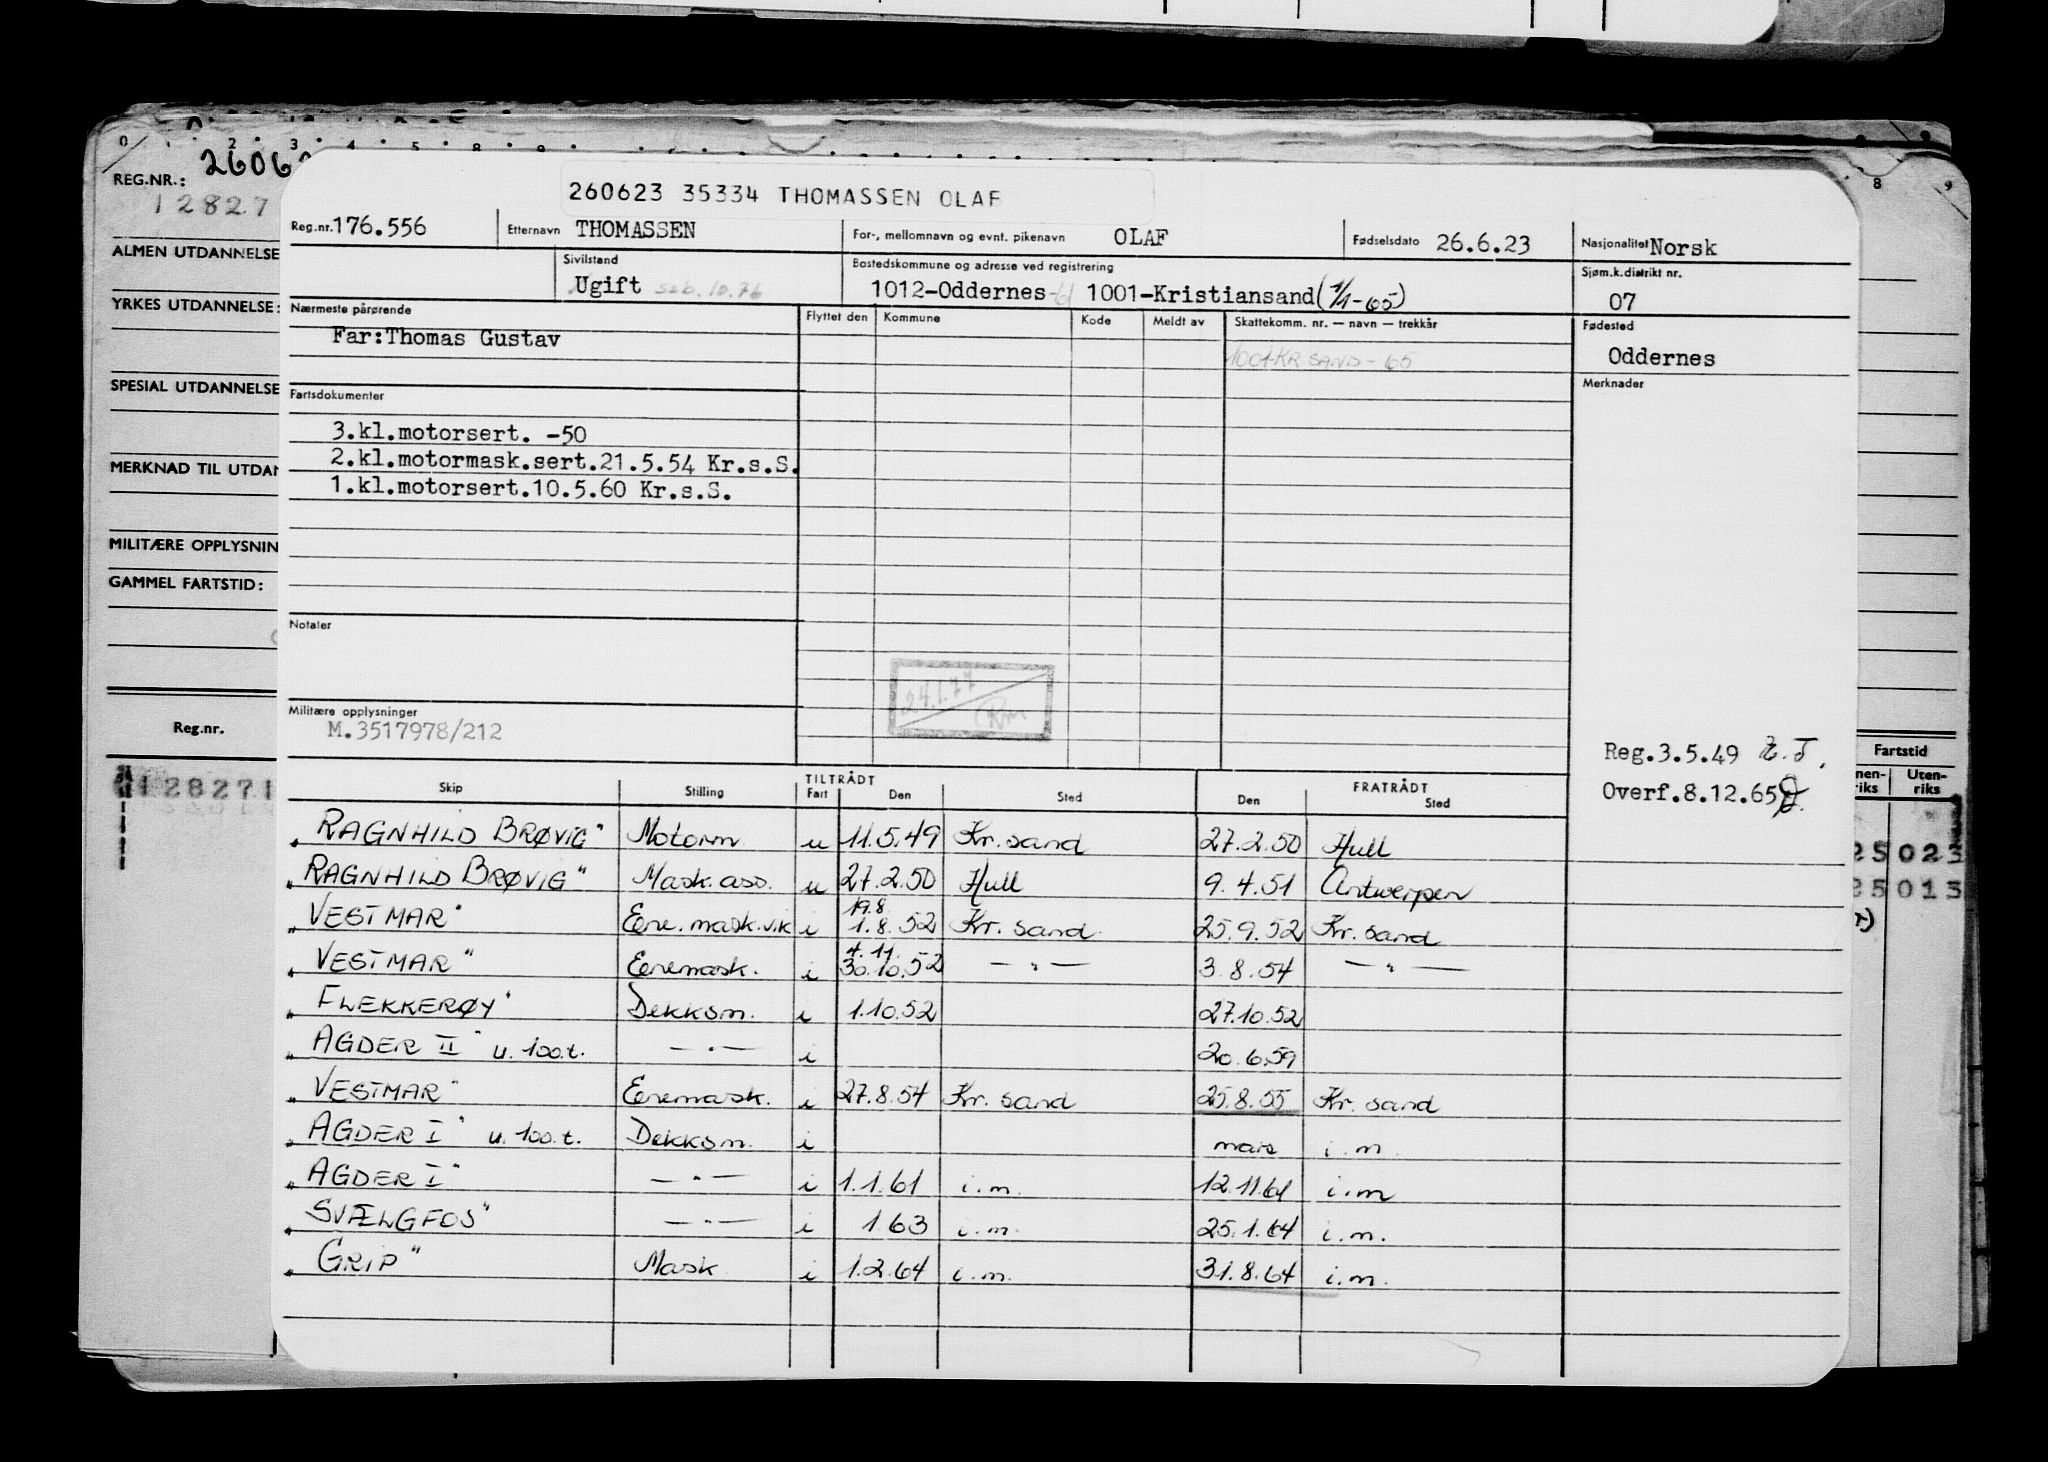 0 2 3 4 5 8 9 8 9
REG.NR.: 2606
12827
ALMEN UTDANNELSE
YRKES UTDANNELSE:
SPESIAL UTDANNELSE
MERKNAD TIL UTDAN
MILITÆRE OPPLYSNIN
GAMMEL FARTSTID:
Reg.nr.
128271
260623 35334 THOMASSEN OLAF
Reg.nr. 176.556 Etternavn THOMASSEN For-, mellomnavn og evnt. pikenavn OLAF Fødselsdato 26.6.23 Nasjonalitet Norsk
Sivilstand Ugift Bostedskommune og adresse ved registrering 1012-Oddernes 1001-Kristiansand (1/1-65) Sjøm.k.distrikt nr. 07
Nærmeste pårørende Flyttet den Kommune Kode Meldt av Skattekomm. nr. — navn — trekkår Fødested
Far:Thomas Gustav 1001-KR SAND - 65 Oddernes
Merknader
Fartsdokumenter
3.kl.motorsert. -50
2.kl.motormask.sert.21.5.54 Kr.s.S.
1.kl.motorsert.10.5.60 Kr.s.S.
Notater
24.1.77
Rm
Militære opplysninger
M.3517978/212
Reg.3.5.49
Overf.8.12.65
TILTRÅDT FRATRÅDT
Skip Stilling Fart Den Sted Den Sted
„RAGNHILD BRØVIG" Motorm u 11.5.49 Kr. sand 27.2.50 Hull
„RAGNHILD BRØVIG" Mask.ass. u 27.2.50 Hull 9.4.51 Antwerpen
19.8
„VESTMAR" Ene.mask.vik i 1.8.52 Kr. sand 25.9.52 Kr. sand
4.11.
„VESTMAR" Enemask. i 30.10.52 —„— 3.8.54 —„—
„FLEKKERØY" Dekksm. i 1.10.52 27.10.52
„AGDER II" u. 100.t. —„— i 20.6.59
„VESTMAR" Enemask. i 27.8.54 Kr. sand 25.8.55 Kr. sand
„AGDER I" u. 100.t. Dekksm. i mars i.m
„AGDER I" —„— i 1.1.61 i.m. 12.11.61 i.m
„SVÆLGFOS" —„— i 1.63 i.m. 25.1.64 i.m.
„GRIP" Mask i 1.2.64 i.m. 31.8.64 i.m.
Fartstid
nen-riks Uten-riks
25 023
25 013